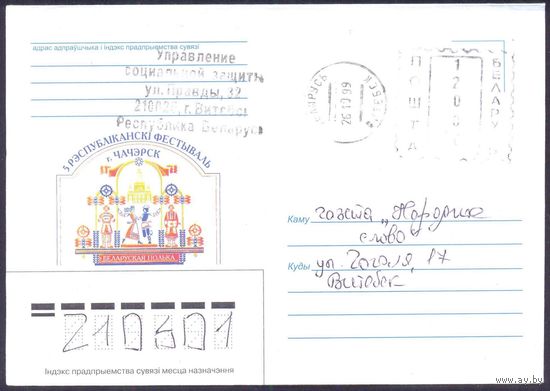 адрас адпраўшчыка і індэкс прадпрыемства сувязі
Управление
социальной защиты
ул. Правды, 32
210026, г. Витебск
Республика Беларусь
БЕЛАРУСЬ
26 10 99
ПОШТА
БЕЛАРУСЬ
5 РЭСПУБЛІКАНСКІ ФЕСТЫВАЛЬ
г. ЧАЧЭРСК
БЕЛАРУСКАЯ ПОЛЬКА
Каму газета "Народнае
слово"
Куды ул. Гоголя, 17
Витебск
210501
Індэкс прадпрыемства сувязі месца назначэння
www.av.by